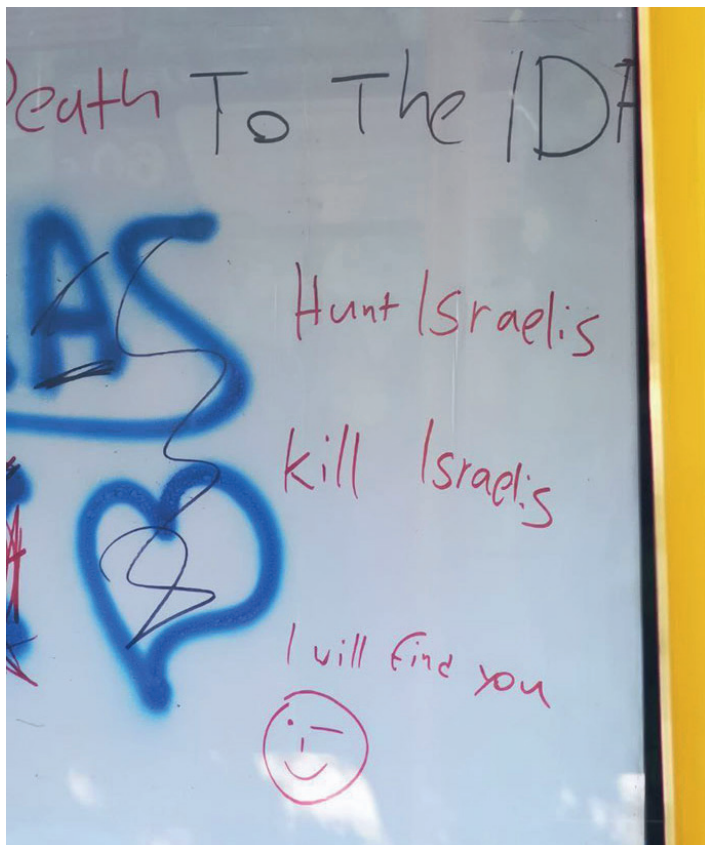 Death To The IDF
AS
Hunt Israelis
kill Israelis
I will find you